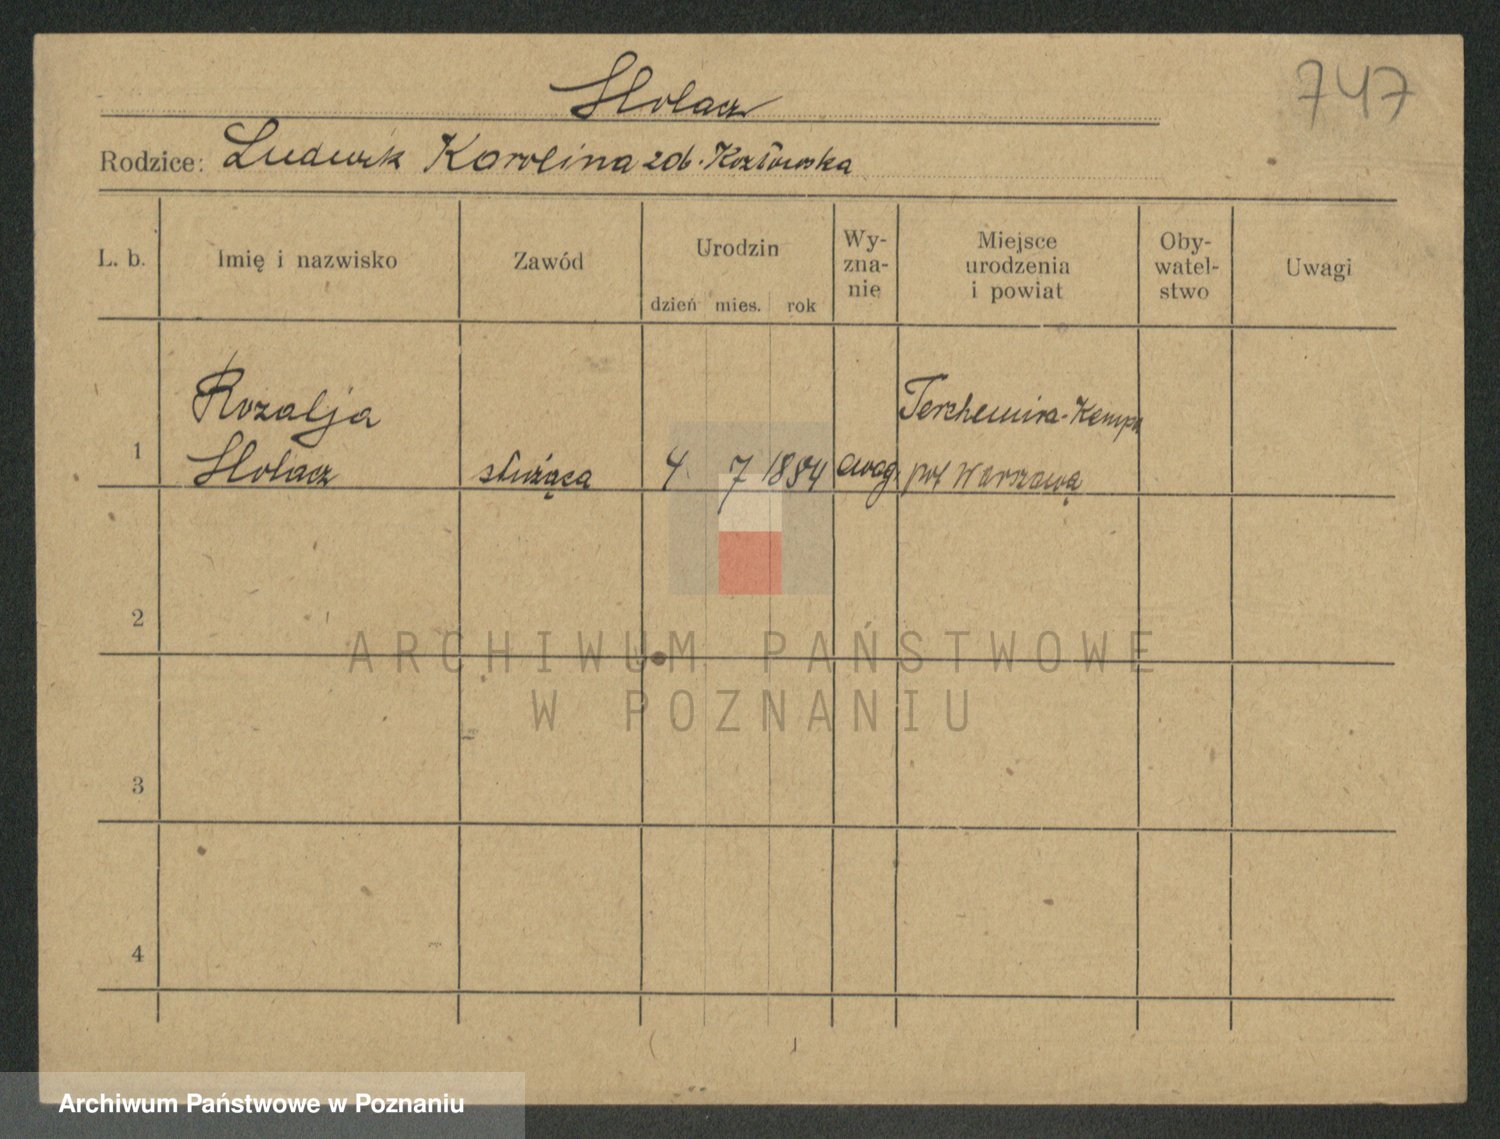 Holacz
747
Rodzice: Ludwik Karolina zdb. Kozłowska
L. b.
Imię i nazwisko
Zawód
Urodzin
dzień mies. rok
Wy-
zna-
nie
Miejsce
urodzenia
i powiat
Oby-
watel-
stwo
Uwagi
1
Rozalja
Holacz
służąca
4 7 1884
ewag
pow Warszawa
2
3
4
ARCHIWUM PAŃSTWOWE
W POZNANIU
Archiwum Państwowe w Poznaniu